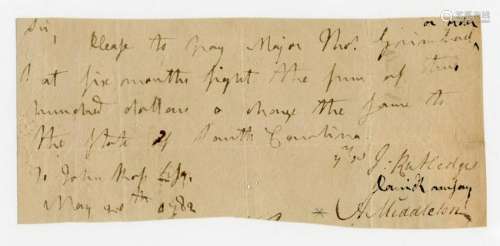 or order
Sir, Please to pay Major Thos. Grimball
at six months sight the sum of two
hundred dollars & charge the same to
the State of South Carolina
yrs J. Rutledge
To John Ross Esq.
David Ramsay
May 20th 1782
A Middleton